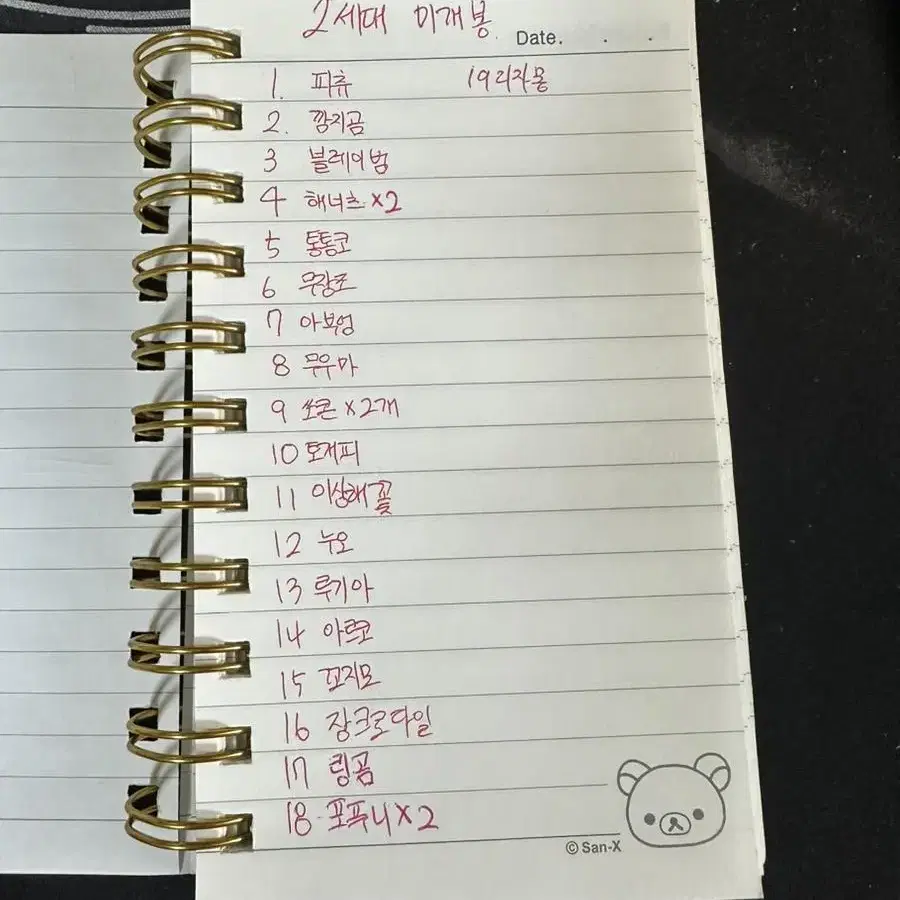 2세대 미개봉
Date. . .
1. 피츄 19 리자몽
2. 깜지곰
3 블레이범
4 해너츠 x2
5 통통코
6 무장조
7 아부엉
8 무우마
9 쏘콘 x2개
10 토게피
11 이상해꽃
12 누오
13 루기아
14 아르코
15 꼬지모
16 장크로다일
17 링곰
18. 포푸니 x2
© San-X